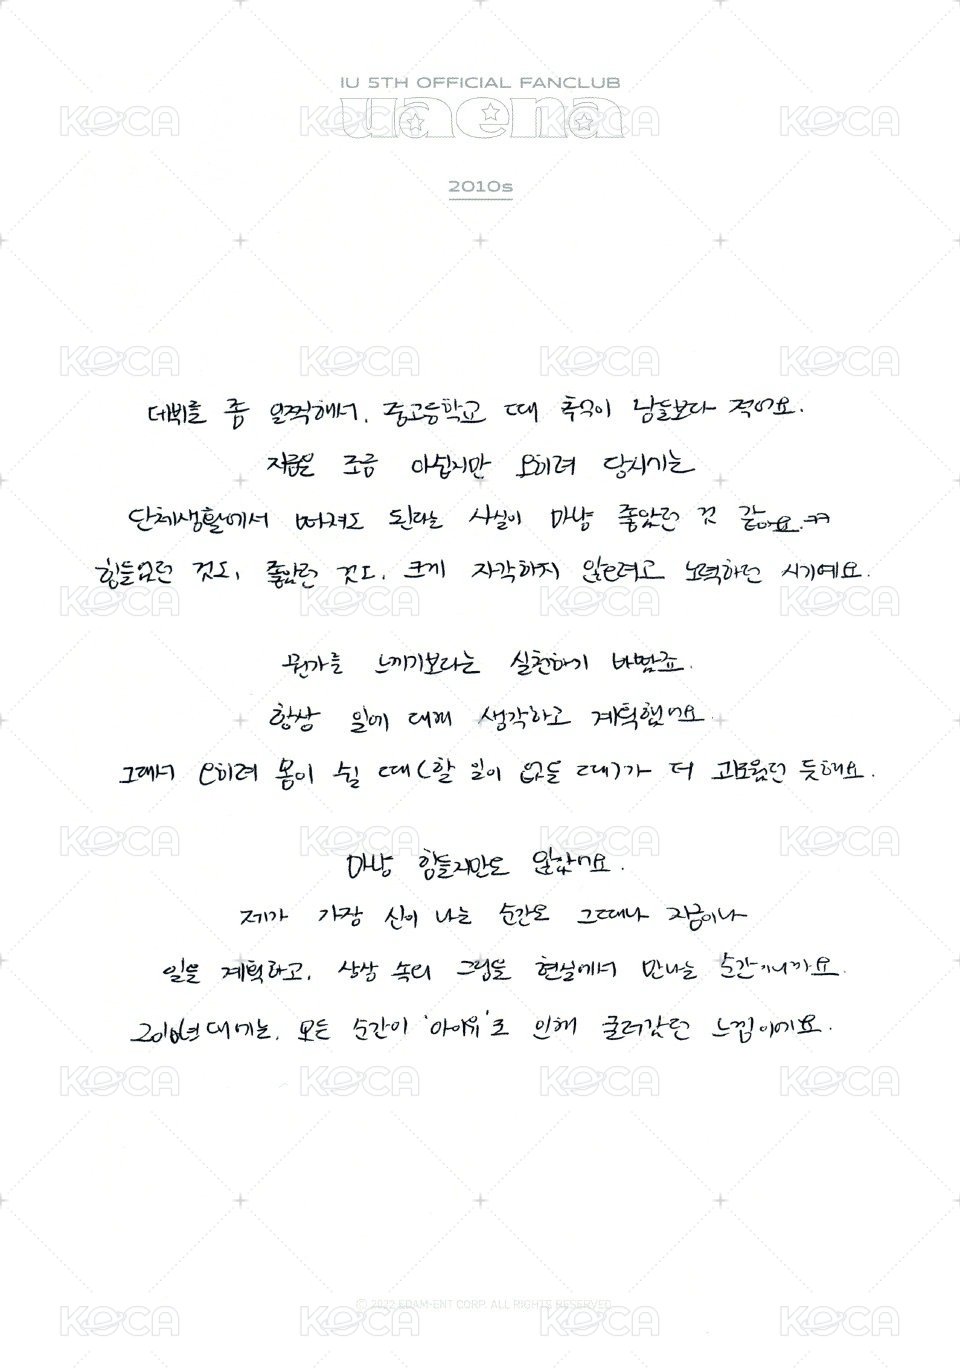 IU 5TH OFFICIAL FANCLUB
uaena
2010s
데뷔를 좀 일찍해서, 중고등학교 때 추억이 남들보다 적어요.
지금은 조금 아쉽지만 오히려 당시기는
단체생활에서 빠져도 된다는 사실이 마냥 좋았던 것 같아요.ㅋㅋ
힘들었던 것도, 좋았던 것도, 크게 자각하지 않으려고 노력하던 시기예요.
뭔가를 느끼기보다는 실천하기 바빴죠.
항상 일에 대해 생각하고 계획했어요
그래서 오히려 몸이 쉴 때(할 일이 없을 때)가 더 괴로웠던 듯해요.
마냥 힘들지만도 않았어요.
제가 가장 신이 나는 순간은 그때나 지금이나
일을 계획하고, 상상 속의 그림을 현실에서 만나는 순간이니까요.
2010년대에는, 모든 순간이 '아이유'로 인해 굴러갔던 느낌이에요.
© 2022 EDAM-ENT CORP. ALL RIGHTS RESERVED
KOCA KOCA KOCA KOCA
KOCA KOCA KOCA KOCA
KOCA KOCA KOCA KOCA
KOCA KOCA KOCA KOCA
KOCA KOCA KOCA KOCA
KOCA KOCA KOCA KOCA